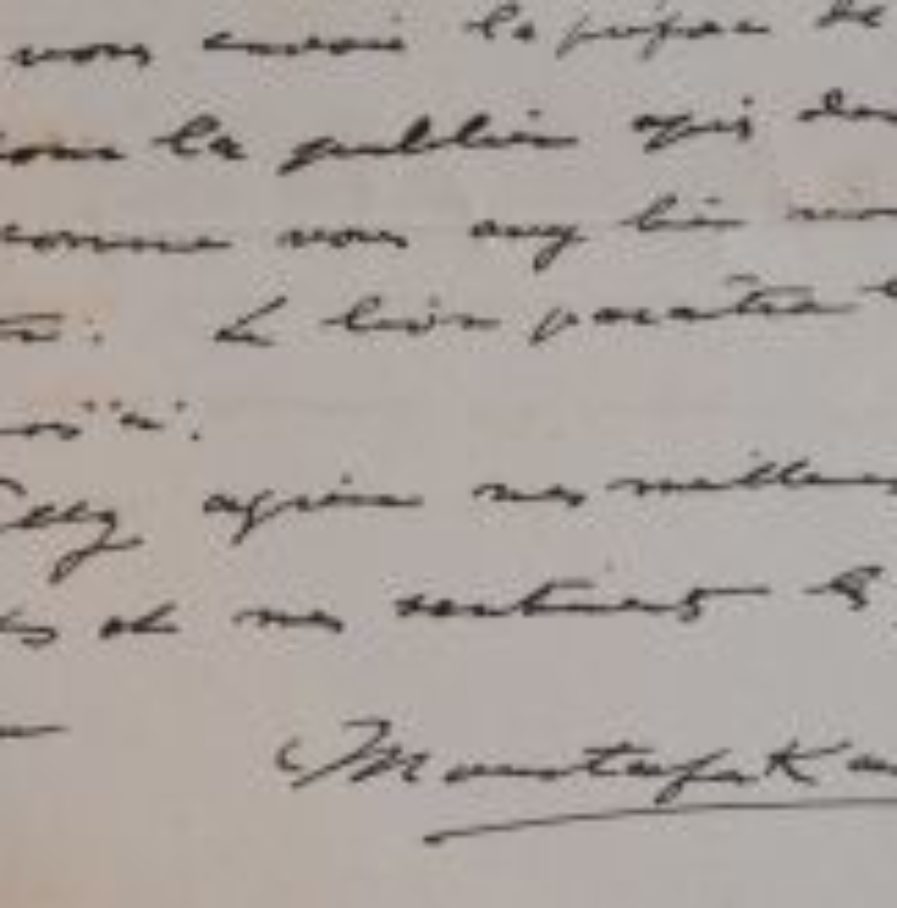 vous envoie la préface de
la publier
comme vous avez bien
Le livre paraîtra
agréer mes meilleurs
et mes sentiments les
Moustafa Ka